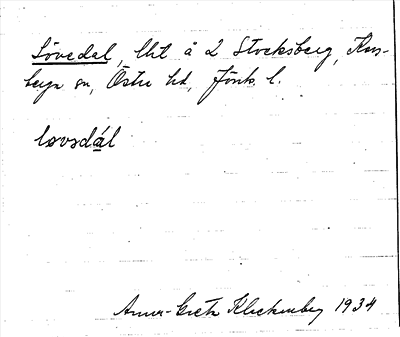 Lövedal, lht å 2 Stocksberg, Kors-
berga sn, Östra hd, Jönk. l.
lövsdál
Anna-Greta Klockenberg 1934